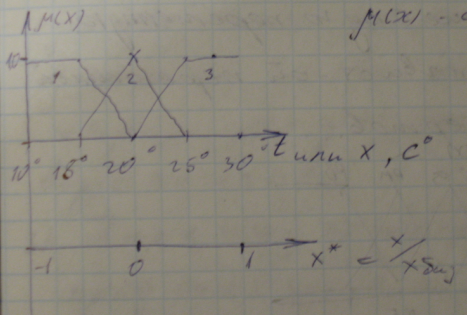 μ(x)
μ(x) -
1,0
1 2 3
10° 15° 20° 25° 30° t или x, C°
-1 0 1 x* = x/xбаз